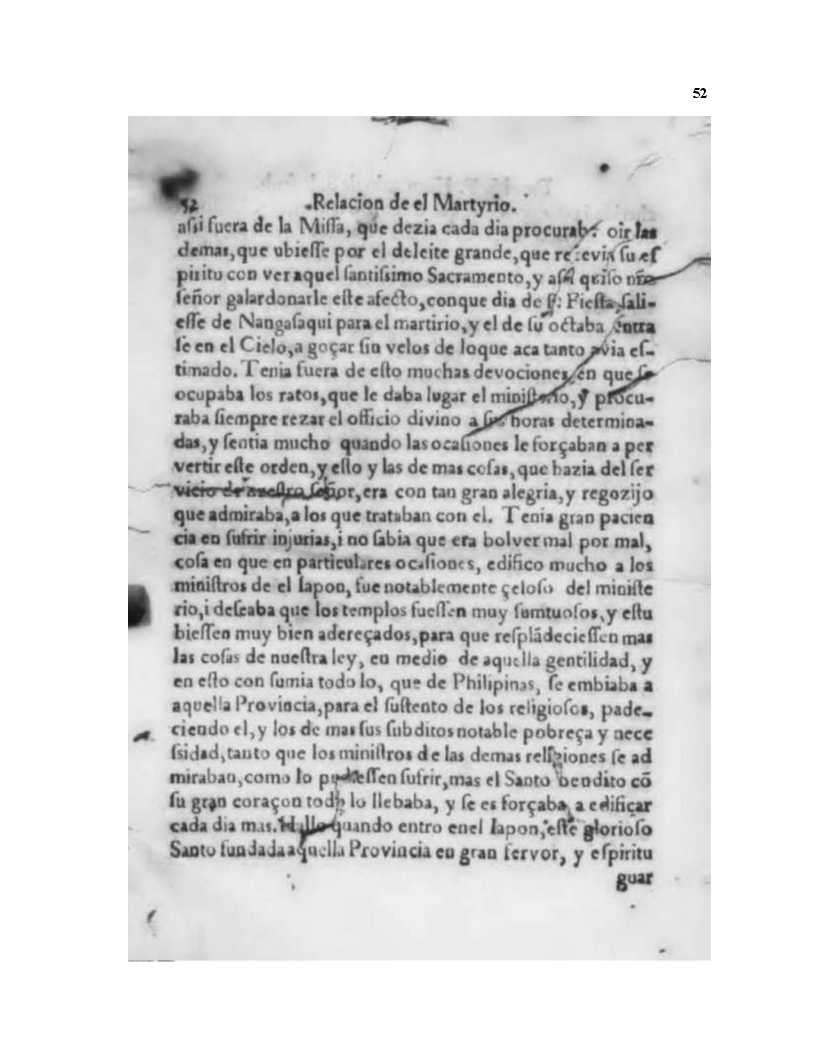 52
52 .Relacion de el Martyrio.
aſsi fuera de la Miſſa, que dezia cada dia procuraba oir las
demas, que ubieſſe por el deleite grande, que recevia ſu eſ
piritu con ver aquel ſantiſsimo Sacramento, y aſsi quiſo nr̃o
ſeñor galardonarle eſte afecto, conque dia de ſ: Fieſta ſali-
eſſe de Nangaſaqui para el martirio, y el de ſu octaba entra
ſe en el Cielo, a goçar ſin velos de loque aca tanto avia eſ-
timado. Tenia fuera de eſto muchas devociones en que ſe
ocupaba los ratos, que le daba lugar el miniſterio, y procu-
raba ſiempre rezar el officio divino a ſus horas determina-
das, y ſentia mucho quando las ocaſiones le forçaban a per
vertir eſte orden, y eſto y las de mas coſas, que hazia del ſer
vicio de nueſtro ſeñor, era con tan gran alegria, y regozijo
que admiraba, a los que trataban con el. Tenia gran pacien
cia en ſufrir injurias, i no ſabia que era bolver mal por mal,
coſa en que en particulares ocaſiones, edifico mucho a los
miniſtros de el Iapon, fue notablemente çeloſo del miniſte
rio, i deſeaba que los templos fueſſen muy ſumtuoſos, y eſtu
bieſſen muy bien adereçados, para que reſplãdecieſſen mas
las coſas de nueſtra ley, en medio de aquella gentilidad, y
en eſto con ſumia todo lo, que de Philipinas, ſe embiaba a
aquella Provincia, para el ſuſtento de los religioſos, pade-
ciendo el, y los de mas ſus ſubditos notable pobreça y nece
ſsidad, tanto que los miniſtros de las demas religiones ſe ad
miraban, como lo pudieſſen ſufrir, mas el Santo bendito cõ
ſu gran coraçon todo lo llebaba, y ſe es forçaba a edificar
cada dia mas. Hallo quando entro enel Iapon, eſte glorioſo
Santo fundada aquella Provincia en gran fervor, y eſpiritu
guar